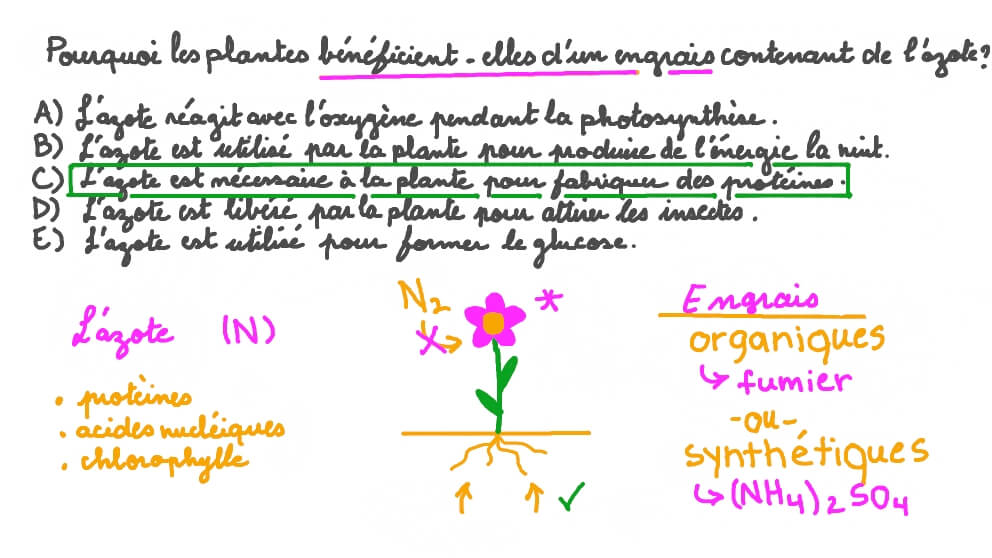 Pourquoi les plantes bénéficient-elles d'un engrais contenant de l'azote?
A) L'azote réagit avec l'oxygène pendant la photosynthèse.
B) L'azote est utilisé par la plante pour produire de l'énergie la nuit.
C) L'azote est nécessaire à la plante pour fabriquer des protéines.
D) L'azote est libéré par la plante pour attirer les insectes.
E) L'azote est utilisé pour former le glucose.
L'azote (N)
• protèines
• acides nucléiques
• chlorophylle
N₂
*
Engrais
organiques
↳ fumier
-ou-
synthétiques
↳ (NH₄)₂SO₄